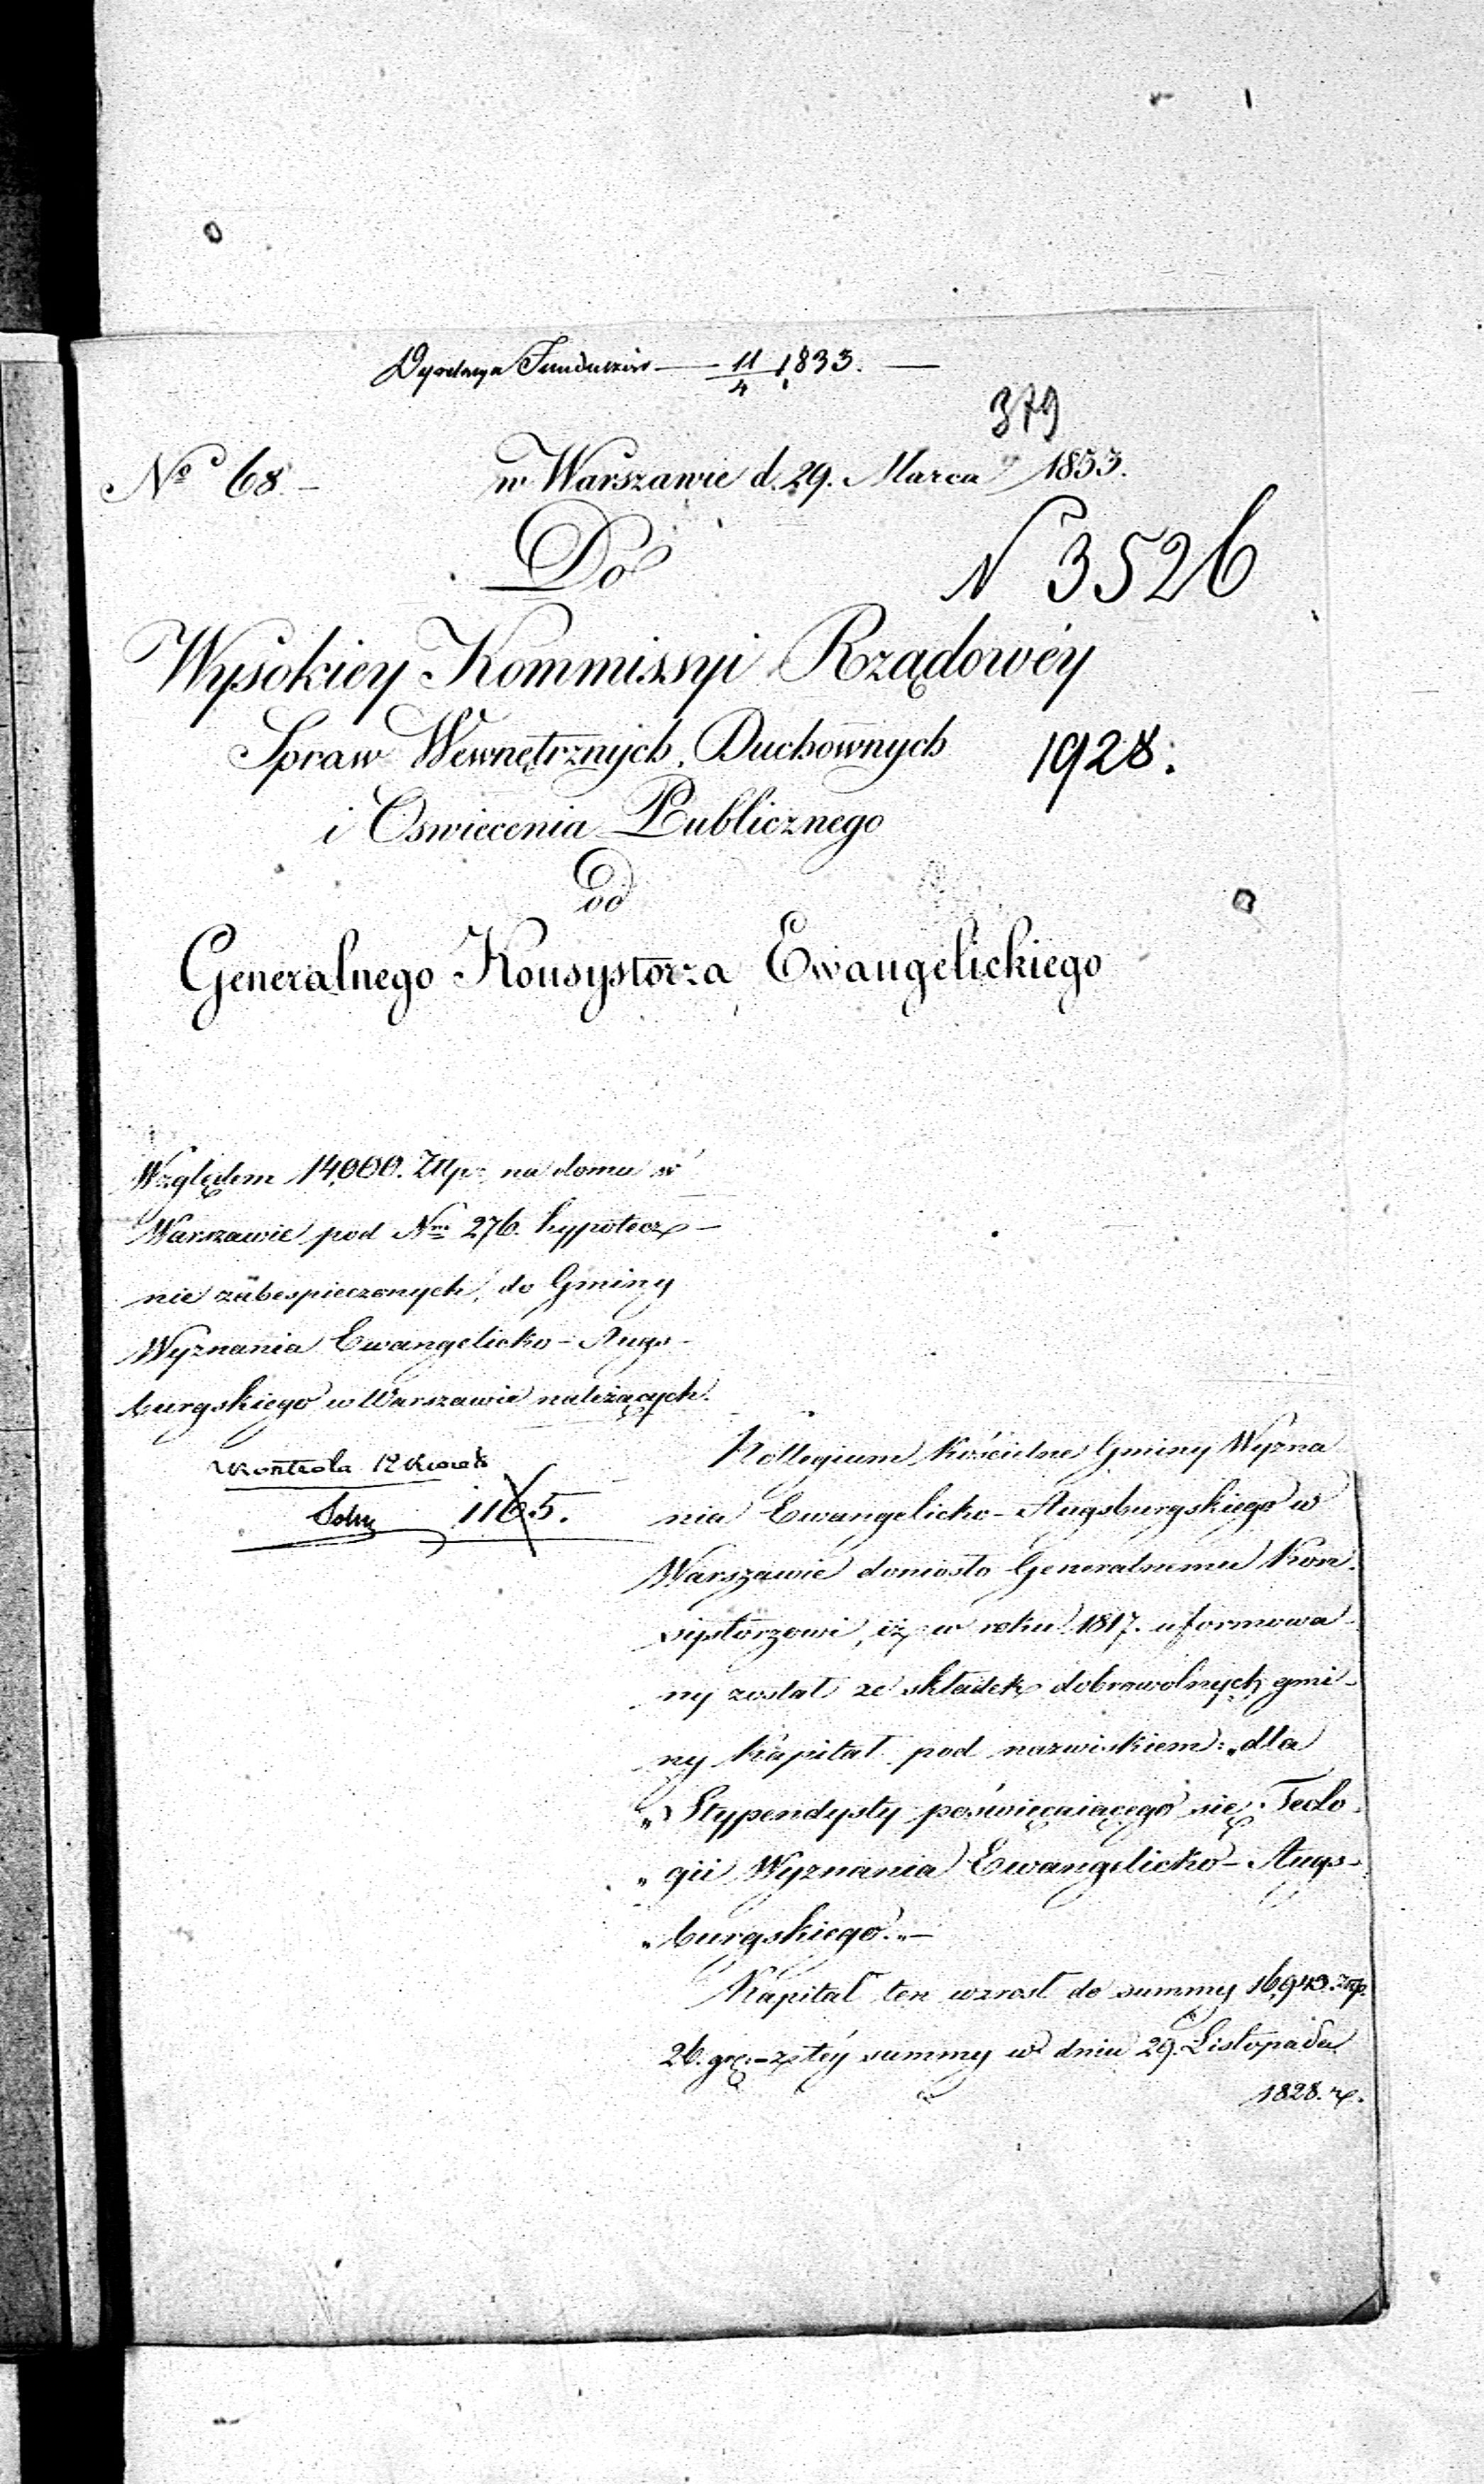 Dyrekcya Funduszów — 11/4 1833. —
379
No 68. — w Warszawie d. 29. Marca 1833.
Do
N 3526
Wysokiey Kommissyi Rządowéy
Spraw Wewnętrznych, Duchownych
1928.
i Oswiecenia Publicznego
od
Generalnego Konsystorza Ewangelickiego
Względem 14,000. Złlp. na domu w
Warszawie pod Nrm 276. hypotecz-
nie zabespieczonych, do Gminy
Wyznania Ewangelicko-Augs-
burgskiego w Warszawie należących.
Kontrola 12
1165.
Kollegium Kościelne Gminy Wyzna
nia Ewangelicko-Augsburgskiego w
Warszawie doniosło Generalnemu Kon-
systorzowi, iż w roku 1817. uformowa-
ny został ze składek dobrowolnych gmi-
ny Kapitał pod nazwiskiem: „dla
„Stypendysty poświęcaiącego się Teolo-
„gii Wyznania Ewangelicko-Augs-
„burgskiego.„—
Kapitał ten wzrosł do summy 16,943. złp.
26. gr. – z téy summy w dniu 29. Listopada
1828. r.